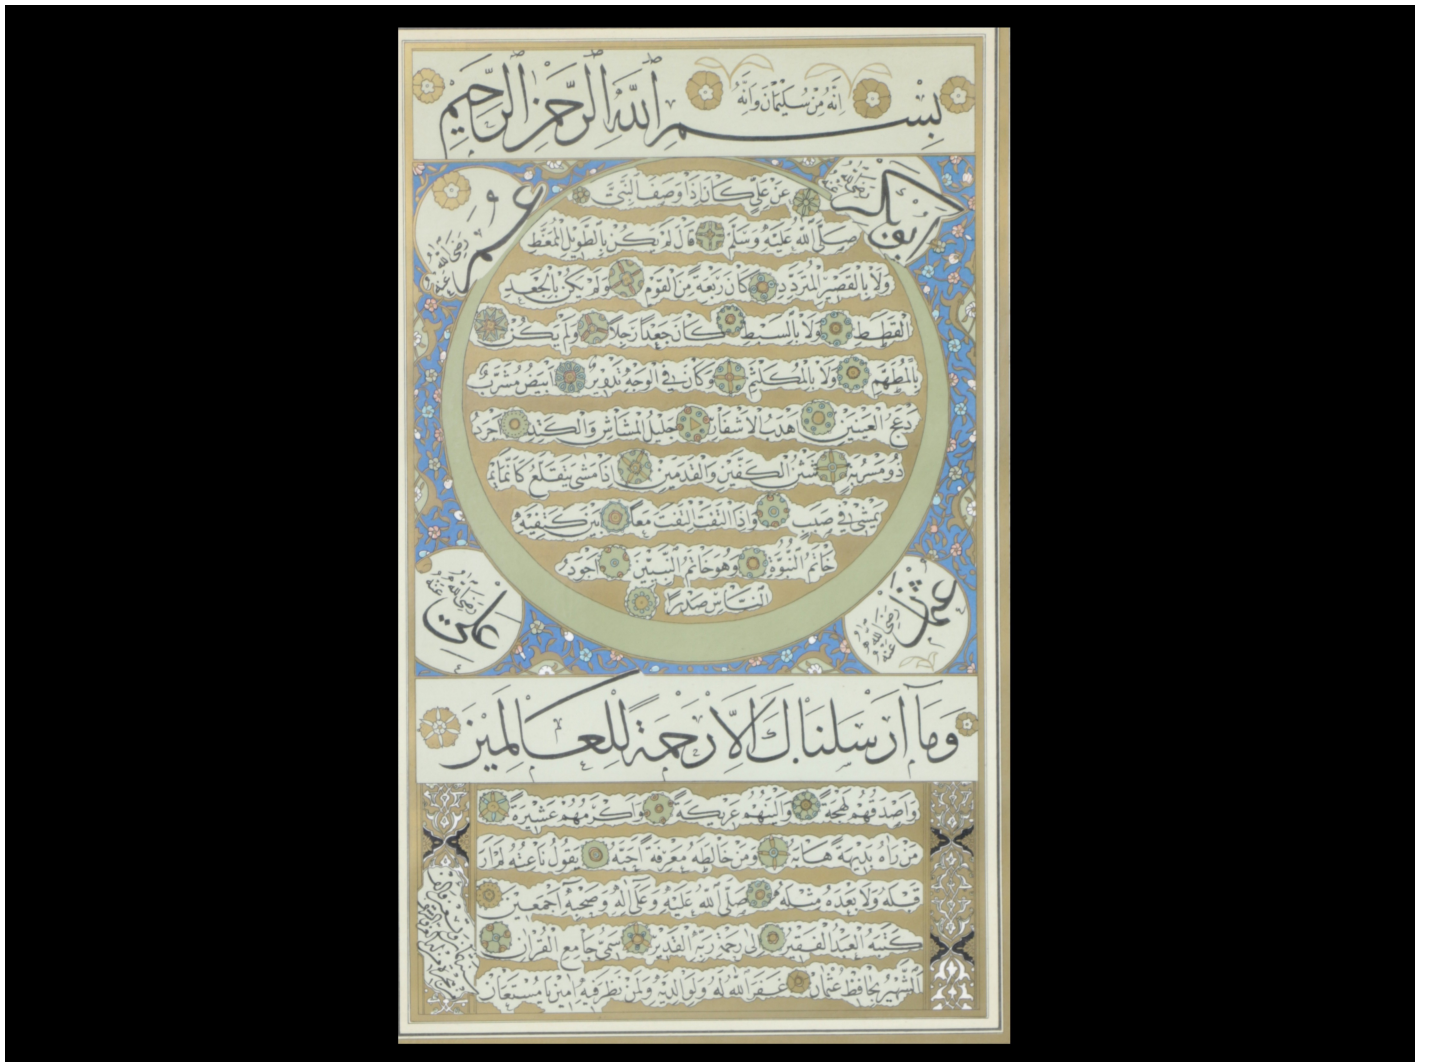 إنه من سليمان وإنه
بسم الله الرحمن الرحيم
أبو بكر رضي الله عنه
عمر رضي الله عنه
عن علي كان إذا وصف النبي
صلى الله عليه وسلم قال لم يكن بالطويل الممغط
ولا بالقصير المتردد كان ربعة من القوم ولم يكن بالجعد
القطط ولا بالسبط كان جعدا رجلا ولم يكن
بالمطهم ولا بالمكلثم وكان في الوجه تدوير أبيض مشرب
أدعج العينين أهدب الأشفار جليل المشاش والكتد أجرد
ذو مسربة شثن الكفين والقدمين إذا مشى يتقلع كأنما
يمشي في صبب وإذا التفت التفت معا بين كتفيه
خاتم النبوة وهو خاتم النبيين أجود
الناس صدرا
عثمان رضي الله عنه
علي رضي الله عنه
وما أرسلناك إلا رحمة للعالمين
وأصدقهم لهجة وألينهم عريكة وأكرمهم عشيرة
من رآه بديهة هابه ومن خالطه معرفة أحبه يقول ناعته لم أر
قبله ولا بعده مثله صلى الله عليه وعلى آله وصحبه أجمعين
كتبه العبد الفقير إلى رحمة ربه القدير سمي جامع القرآن
الشهير بحافظ عثمان غفر الله له ولوالديه ولمن نظر فيه آمين يا مستعان